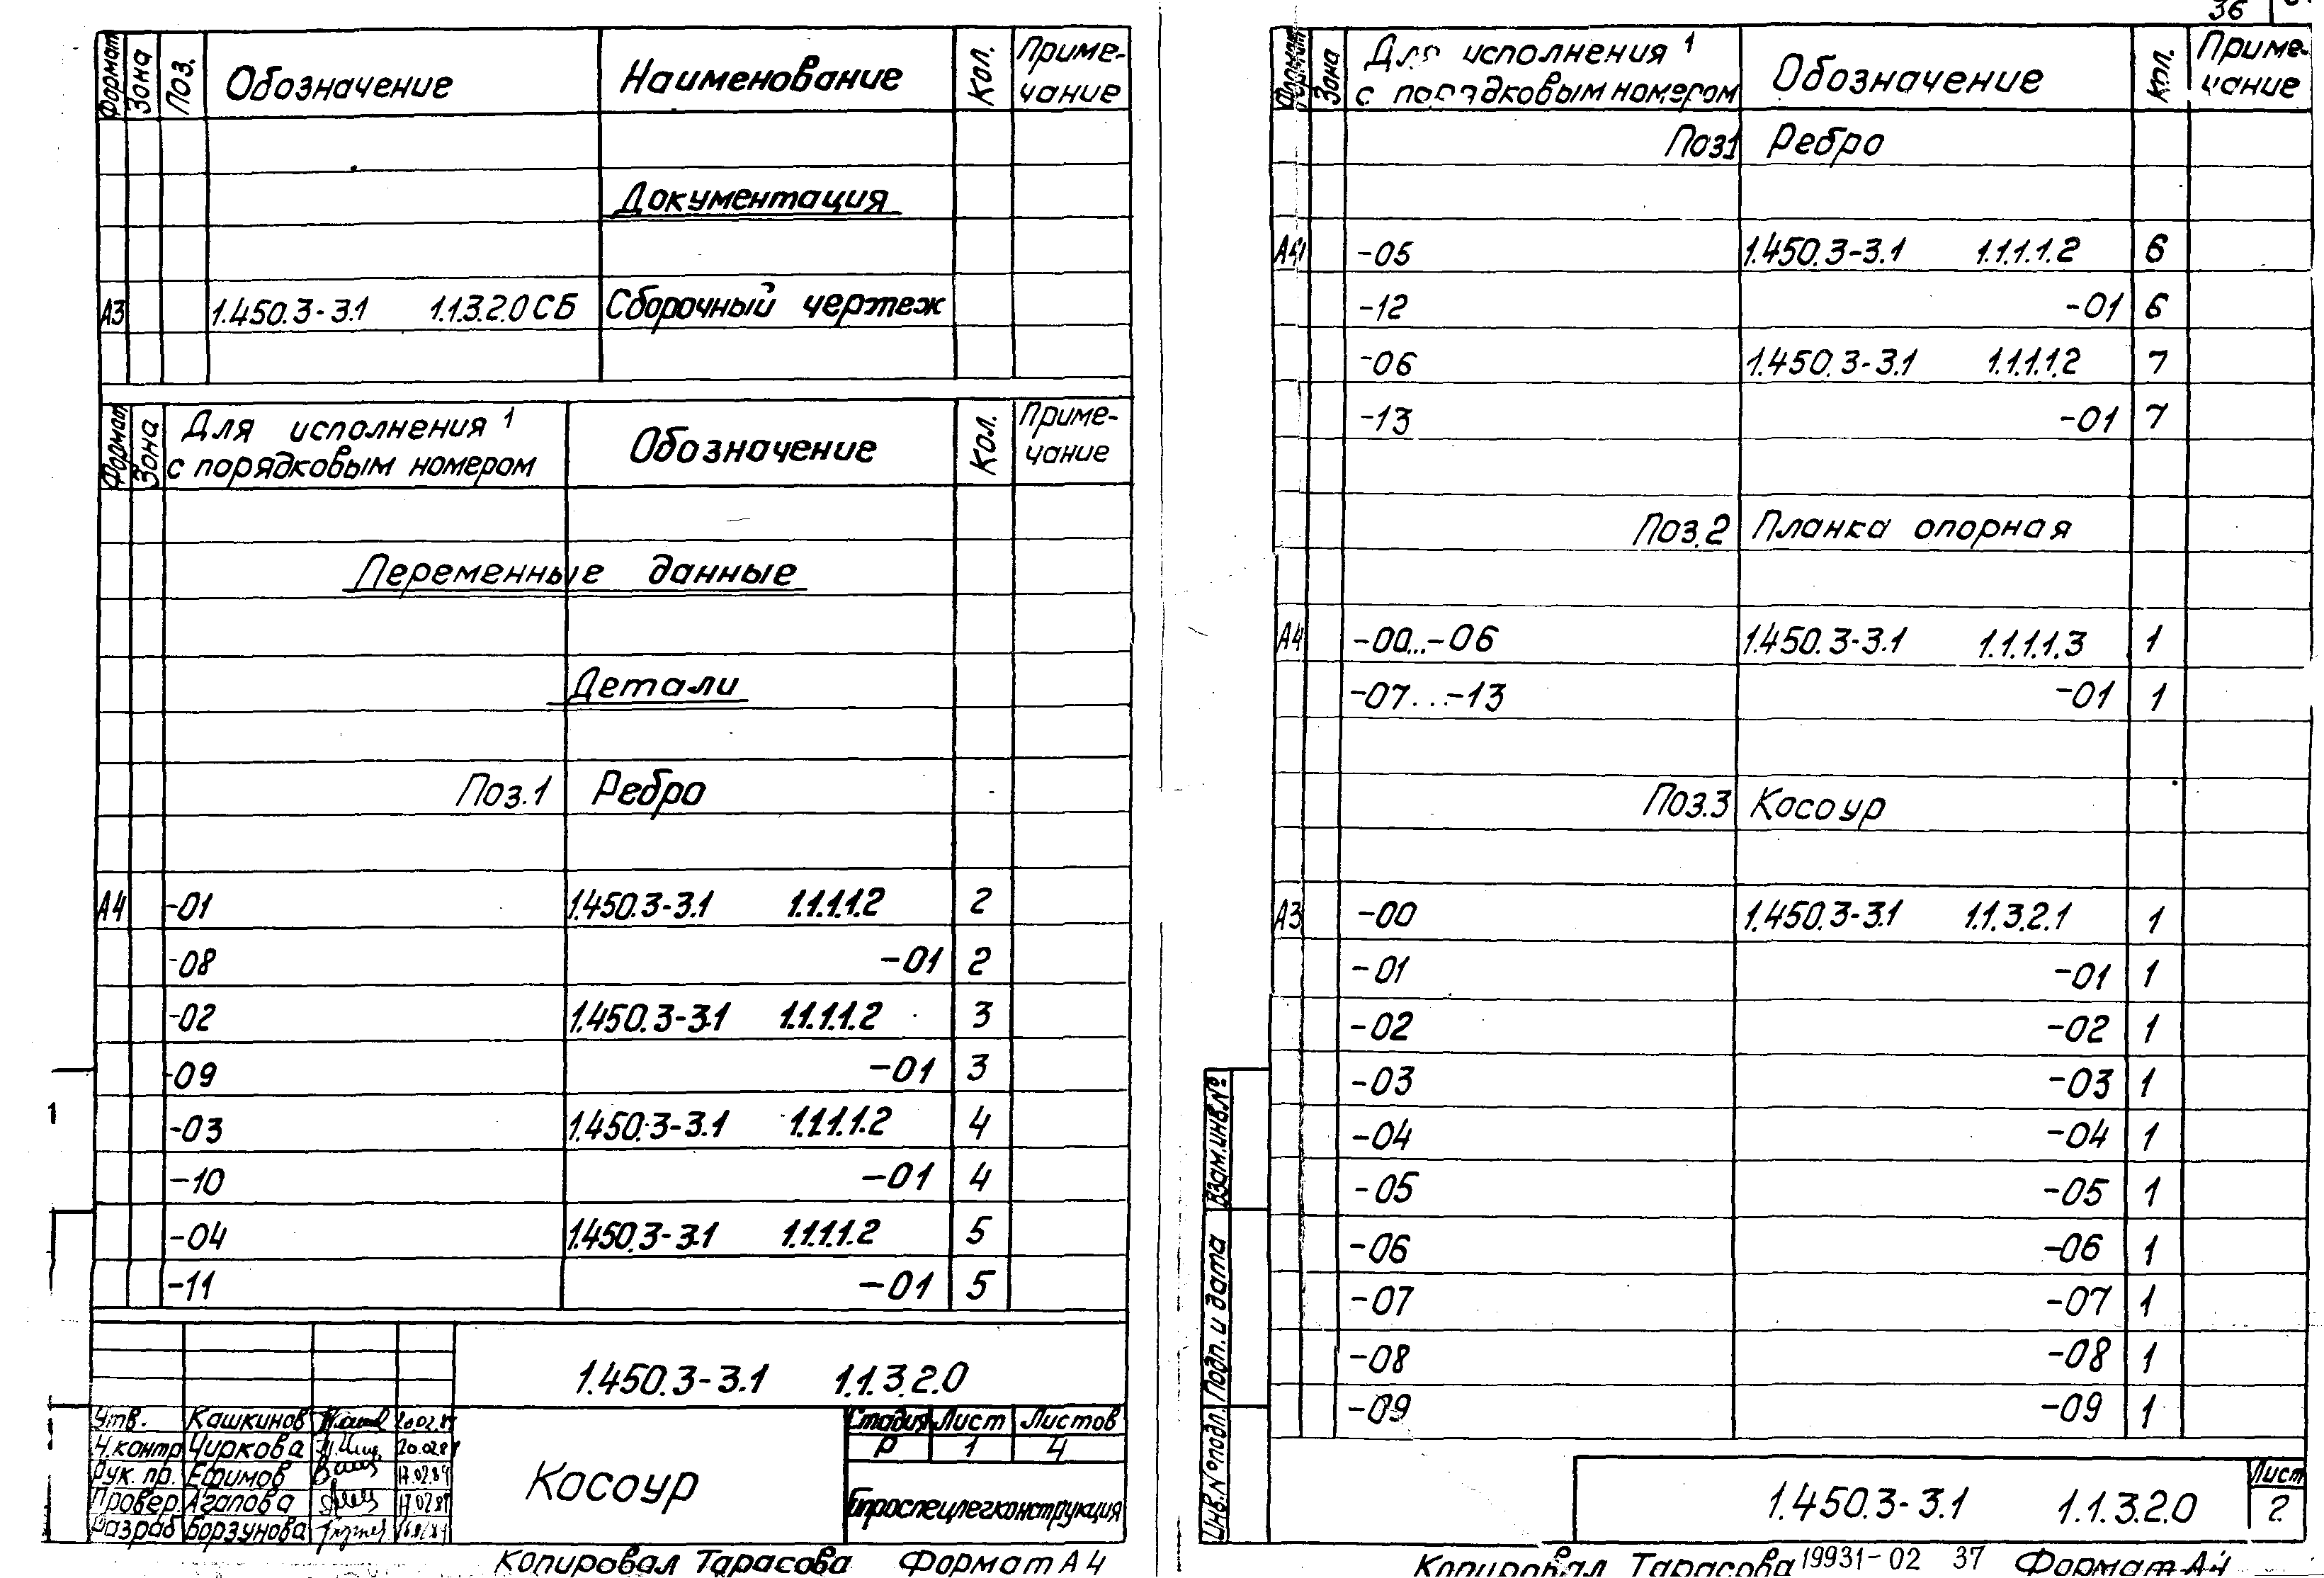 Формат Зона Поз. Обозначение Наименование Кол. Приме-
чание
Документация
А3 1.450.3-3.1 1.1.3.2.0 СБ Сборочный чертеж
Формат Зона Для исполнения 1 Обозначение Кол. Приме-
с порядковым номером чание
Переменные данные
Детали
Поз.1 Ребро
А4 -01 1.450.3-3.1 1.1.1.1.2 2
-08 -01 2
-02 1.450.3-3.1 1.1.1.1.2 3
-09 -01 3
-03 1.450.3-3.1 1.1.1.1.2 4
-10 -01 4
-04 1.450.3-3.1 1.1.1.1.2 5
-11 -01 5
1
1.450.3-3.1 1.1.3.2.0
Утв. Кашкинов 20.02.
Н.контр Чиркова
Рук. пр. Ефимов 17.02.89
Провер. Агапова 17.02.89
Разраб Борзунова
Косоур
Стадия Лист Листов
Р 1 4
Гипроспецлегконструкция
Копировал Тарасова Формат А4
36
Формат Зона Для исполнения 1 Обозначение Кол. Приме-
с порядковым номером чание
Поз1 Ребро
А4 -05 1.450.3-3.1 1.1.1.1.2 6
-12 -01 6
-06 1.450.3-3.1 1.1.1.1.2 7
-13 -01 7
Поз.2 Планка опорная
А4 -00...-06 1.450.3-3.1 1.1.1.1.3 1
-07...-13 -01 1
Поз.3 Косоур
А3 -00 1.450.3-3.1 1.1.3.2.1 1
-01 -01 1
-02 -02 1
-03 -03 1
-04 -04 1
-05 -05 1
-06 -06 1
-07 -07 1
-08 -08 1
-09 -09 1
Взам.инв.№
Подп. и дата
Инв.№ подл.
1.450.3-3.1 1.1.3.2.0 Лист
2
Копировал Тарасова 19931-02 37 Формат А4